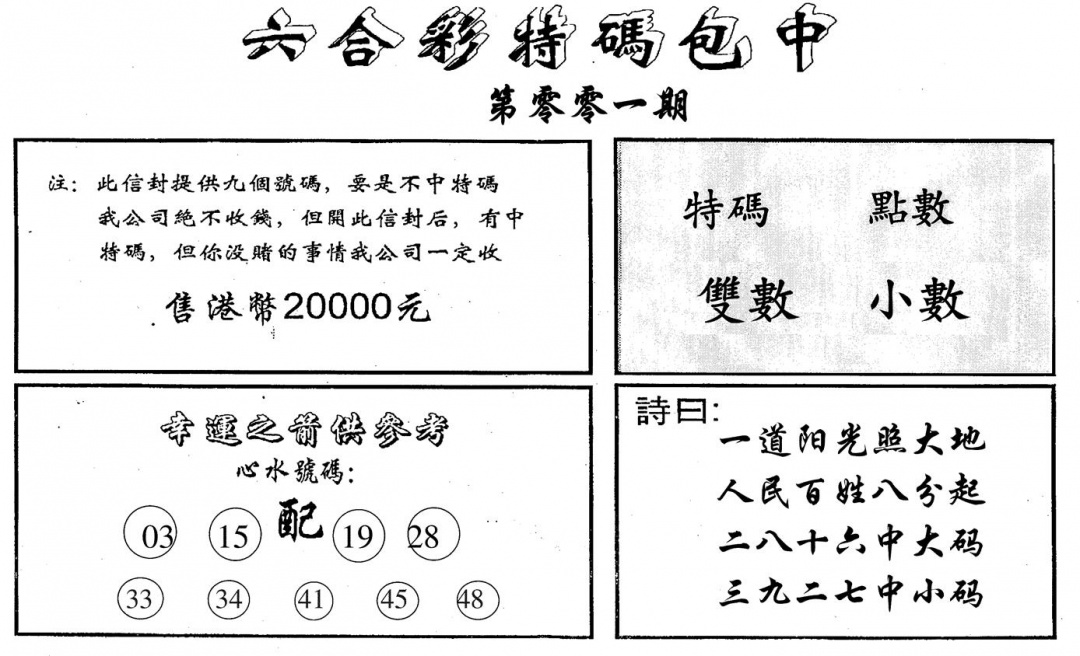 六合彩特碼包中
第零零一期
注：此信封提供九個號碼，要是不中特碼
我公司絶不收錢，但開此信封后，有中
特碼，但你没賭的事情我公司一定收
售港幣20000元
特碼 點數
雙數 小數
幸運之箭供參考
心水號碼：
配
03 15 19 28
33 34 41 45 48
詩曰：
一道阳光照大地
人民百姓八分起
二八十六中大码
三九二七中小码